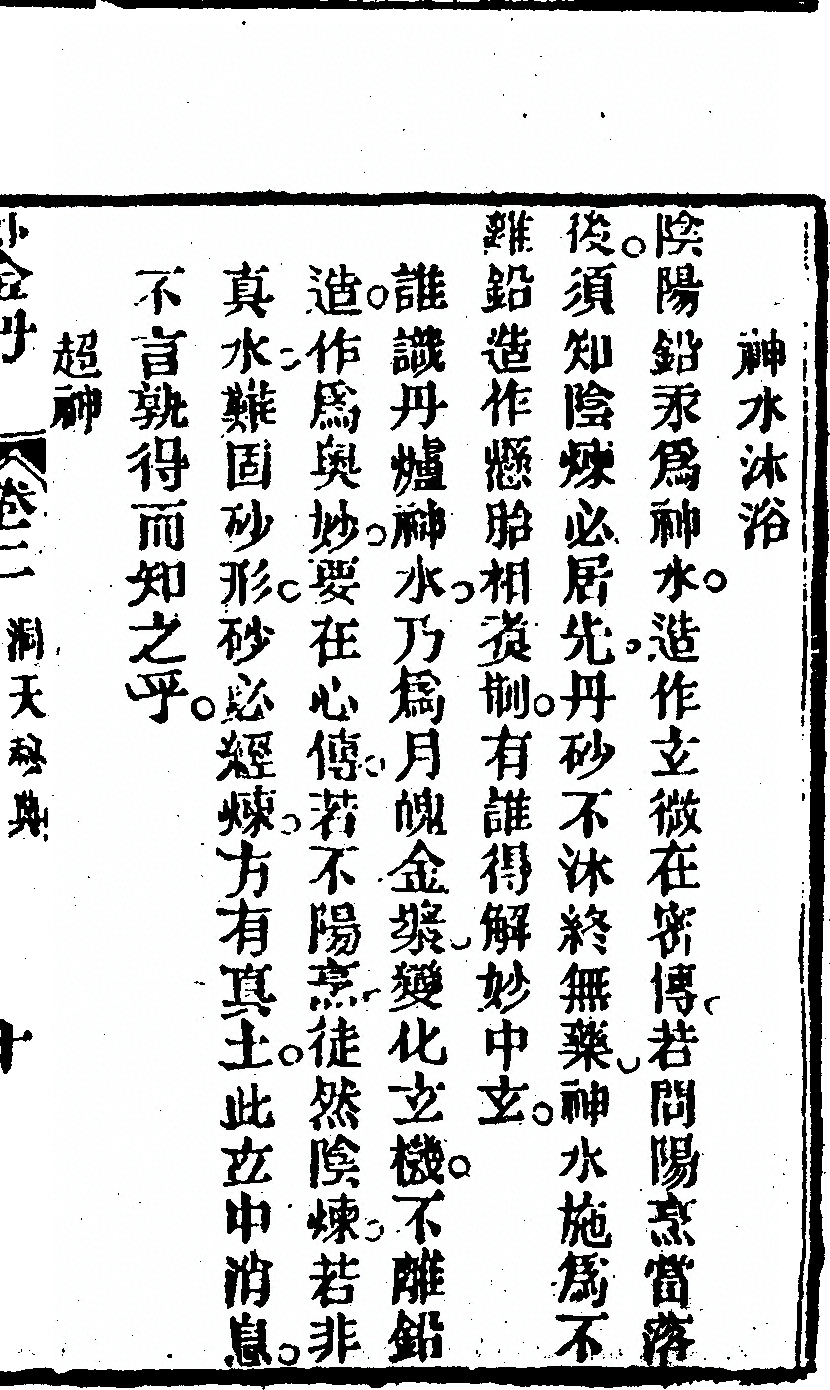 神水沐浴
陰陽鉛汞爲神水造作玄微在密傳若問陽烹當落
後須知陰煉必居先丹砂不沐終無藥神水施爲不
離鉛造作懸胎相煮制有誰得解妙中玄
誰識丹爐神水乃爲月魄金漿變化玄機不離鉛
造作爲奥妙要在心傳若不陽烹徒然陰煉若非
真水難固砂形砂必經煉方有真土此玄中消息
不言孰得而知之乎
超神
金丹
卷二
洞天秘典
十